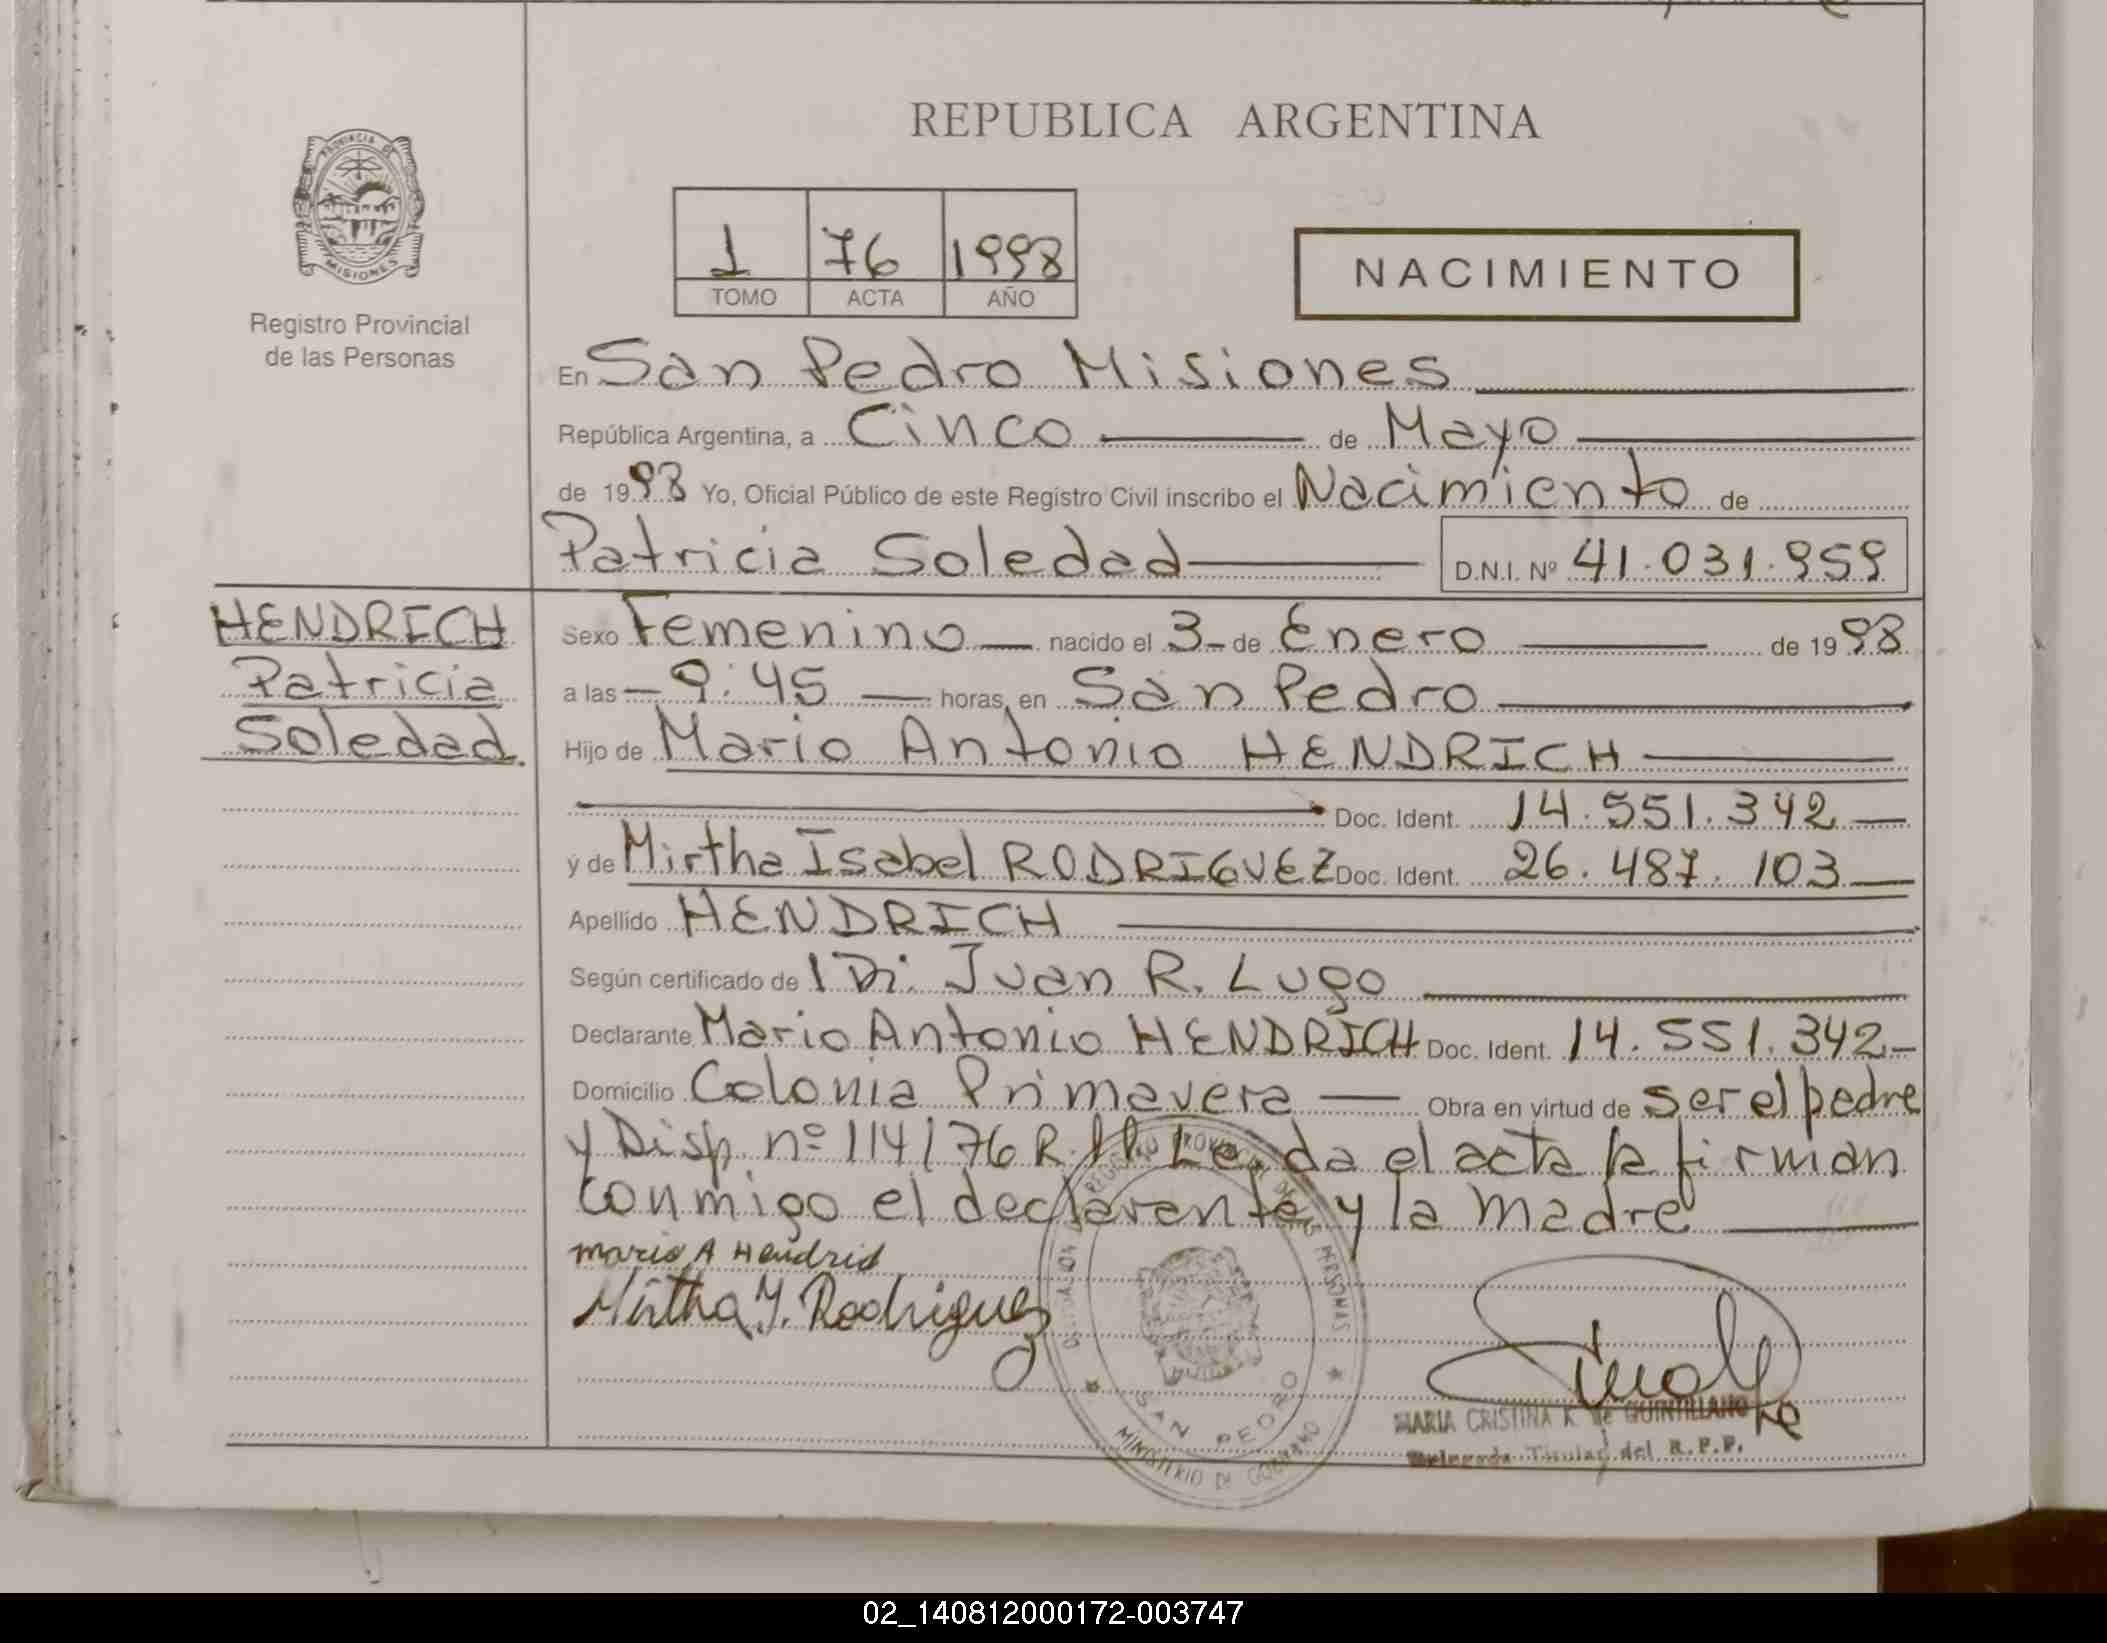 REPUBLICA ARGENTINA
PROVINCIA DE
MISIONES
Registro Provincial
de las Personas
1 76 1998
TOMO ACTA AÑO
NACIMIENTO
En San Pedro Misiones
República Argentina, a Cinco de Mayo
de 1998 Yo, Oficial Público de este Registro Civil inscribo el Nacimiento de
Patricia Soledad D.N.I. Nº 41.031.959
HENDRICH
Patricia
Soledad.
Sexo Femenino nacido el 3 de Enero de 1998
a las 9:45 horas, en San Pedro
Hijo de Mario Antonio HENDRICH
Doc. Ident. 14.551.342
y de Mirtha Isabel RODRIGUEZ Doc. Ident. 26.487.103
Apellido HENDRICH
Según certificado de Juan R. Lugo
Declarante Mario Antonio HENDRICH Doc. Ident. 14.551.342
Domicilio Colonia Primavera Obra en virtud de ser el padre
y Disp. nº 114/76 R. Leida el acta la firman
conmigo el declarante y la madre
Mario A Hendrich
Mirtha Y. Rodriguez
REGISTRO PROVINCIAL DE LAS PERSONAS
SAN PEDRO
MINISTERIO DE GOBIERNO
MARIA CRISTINA R. de QUINTILLANO
Delegada Titular del R.P.P.
02_140812000172-003747